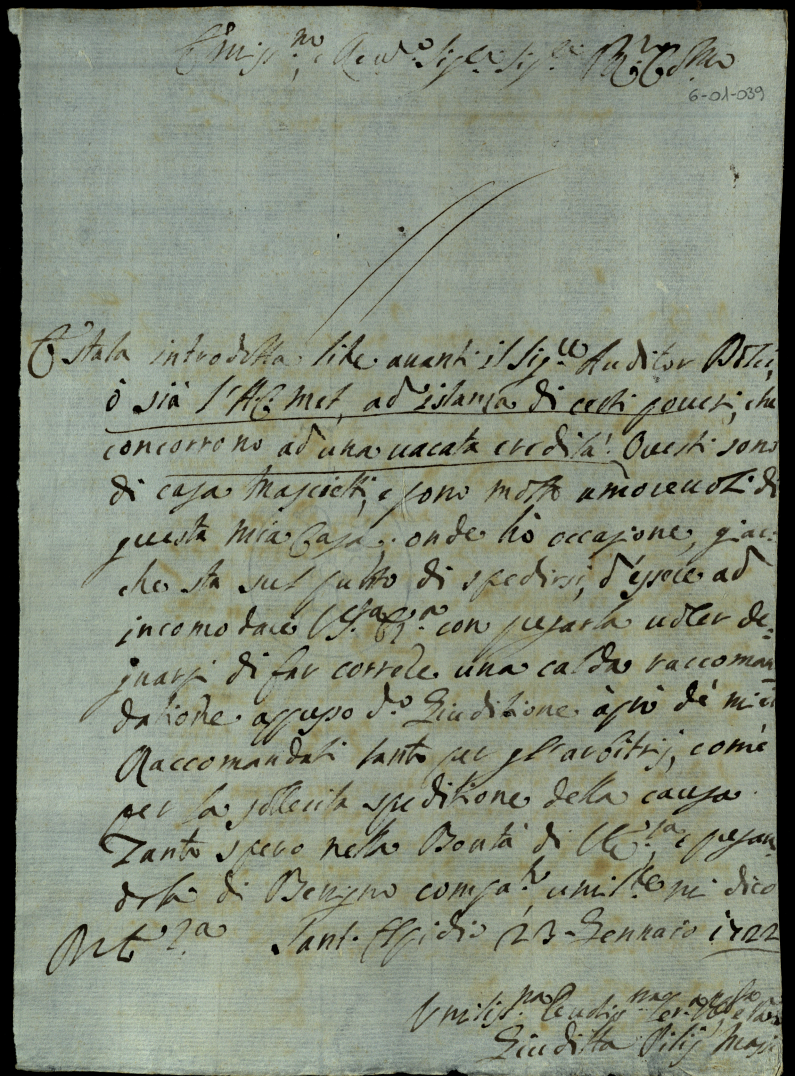 Em.mo e Rev.do Sig.re Sig.re
6-01-039
È stata introdotta lite avanti il Sig.re Auditor
ò sia l'AC. met, ad istanza di certi poveri, che
concorrono ad una vacata eredità. Questi sono
di casa Mascietti, e sono molto amorevoli di
questa mia Casa, onde hò occasione, giac:
che sta sul punto di spedirsi, d'essere ad
incomodare V. Em.a con pregarla voler de=
gnarsi di far correre una calda raccoman
datione appresso d.o Giuditione à prò dè miei
Raccomandati tanto per gl'arbitrij, come
per la sollecita speditione della causa.
Tanto spero nella Bontà di e pregan
dola di Benigno compa.to, umil.te mi dico
Sant. Elpidio 23 Gennaio 1722
Umiliss.ma
Giuditta Pilij